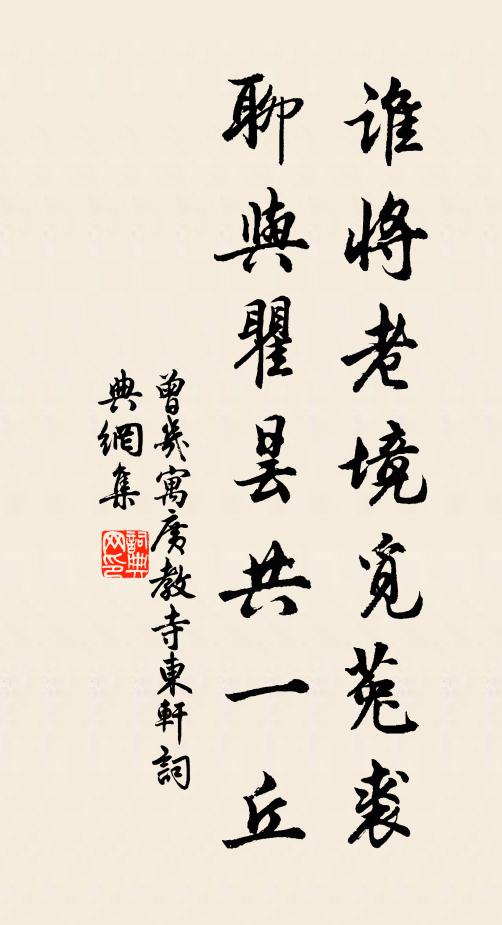 誰將老境覓菟裘
聊與瞿曇共一丘
曾幾寓廣教寺東軒詞
典網集
詞典
网印